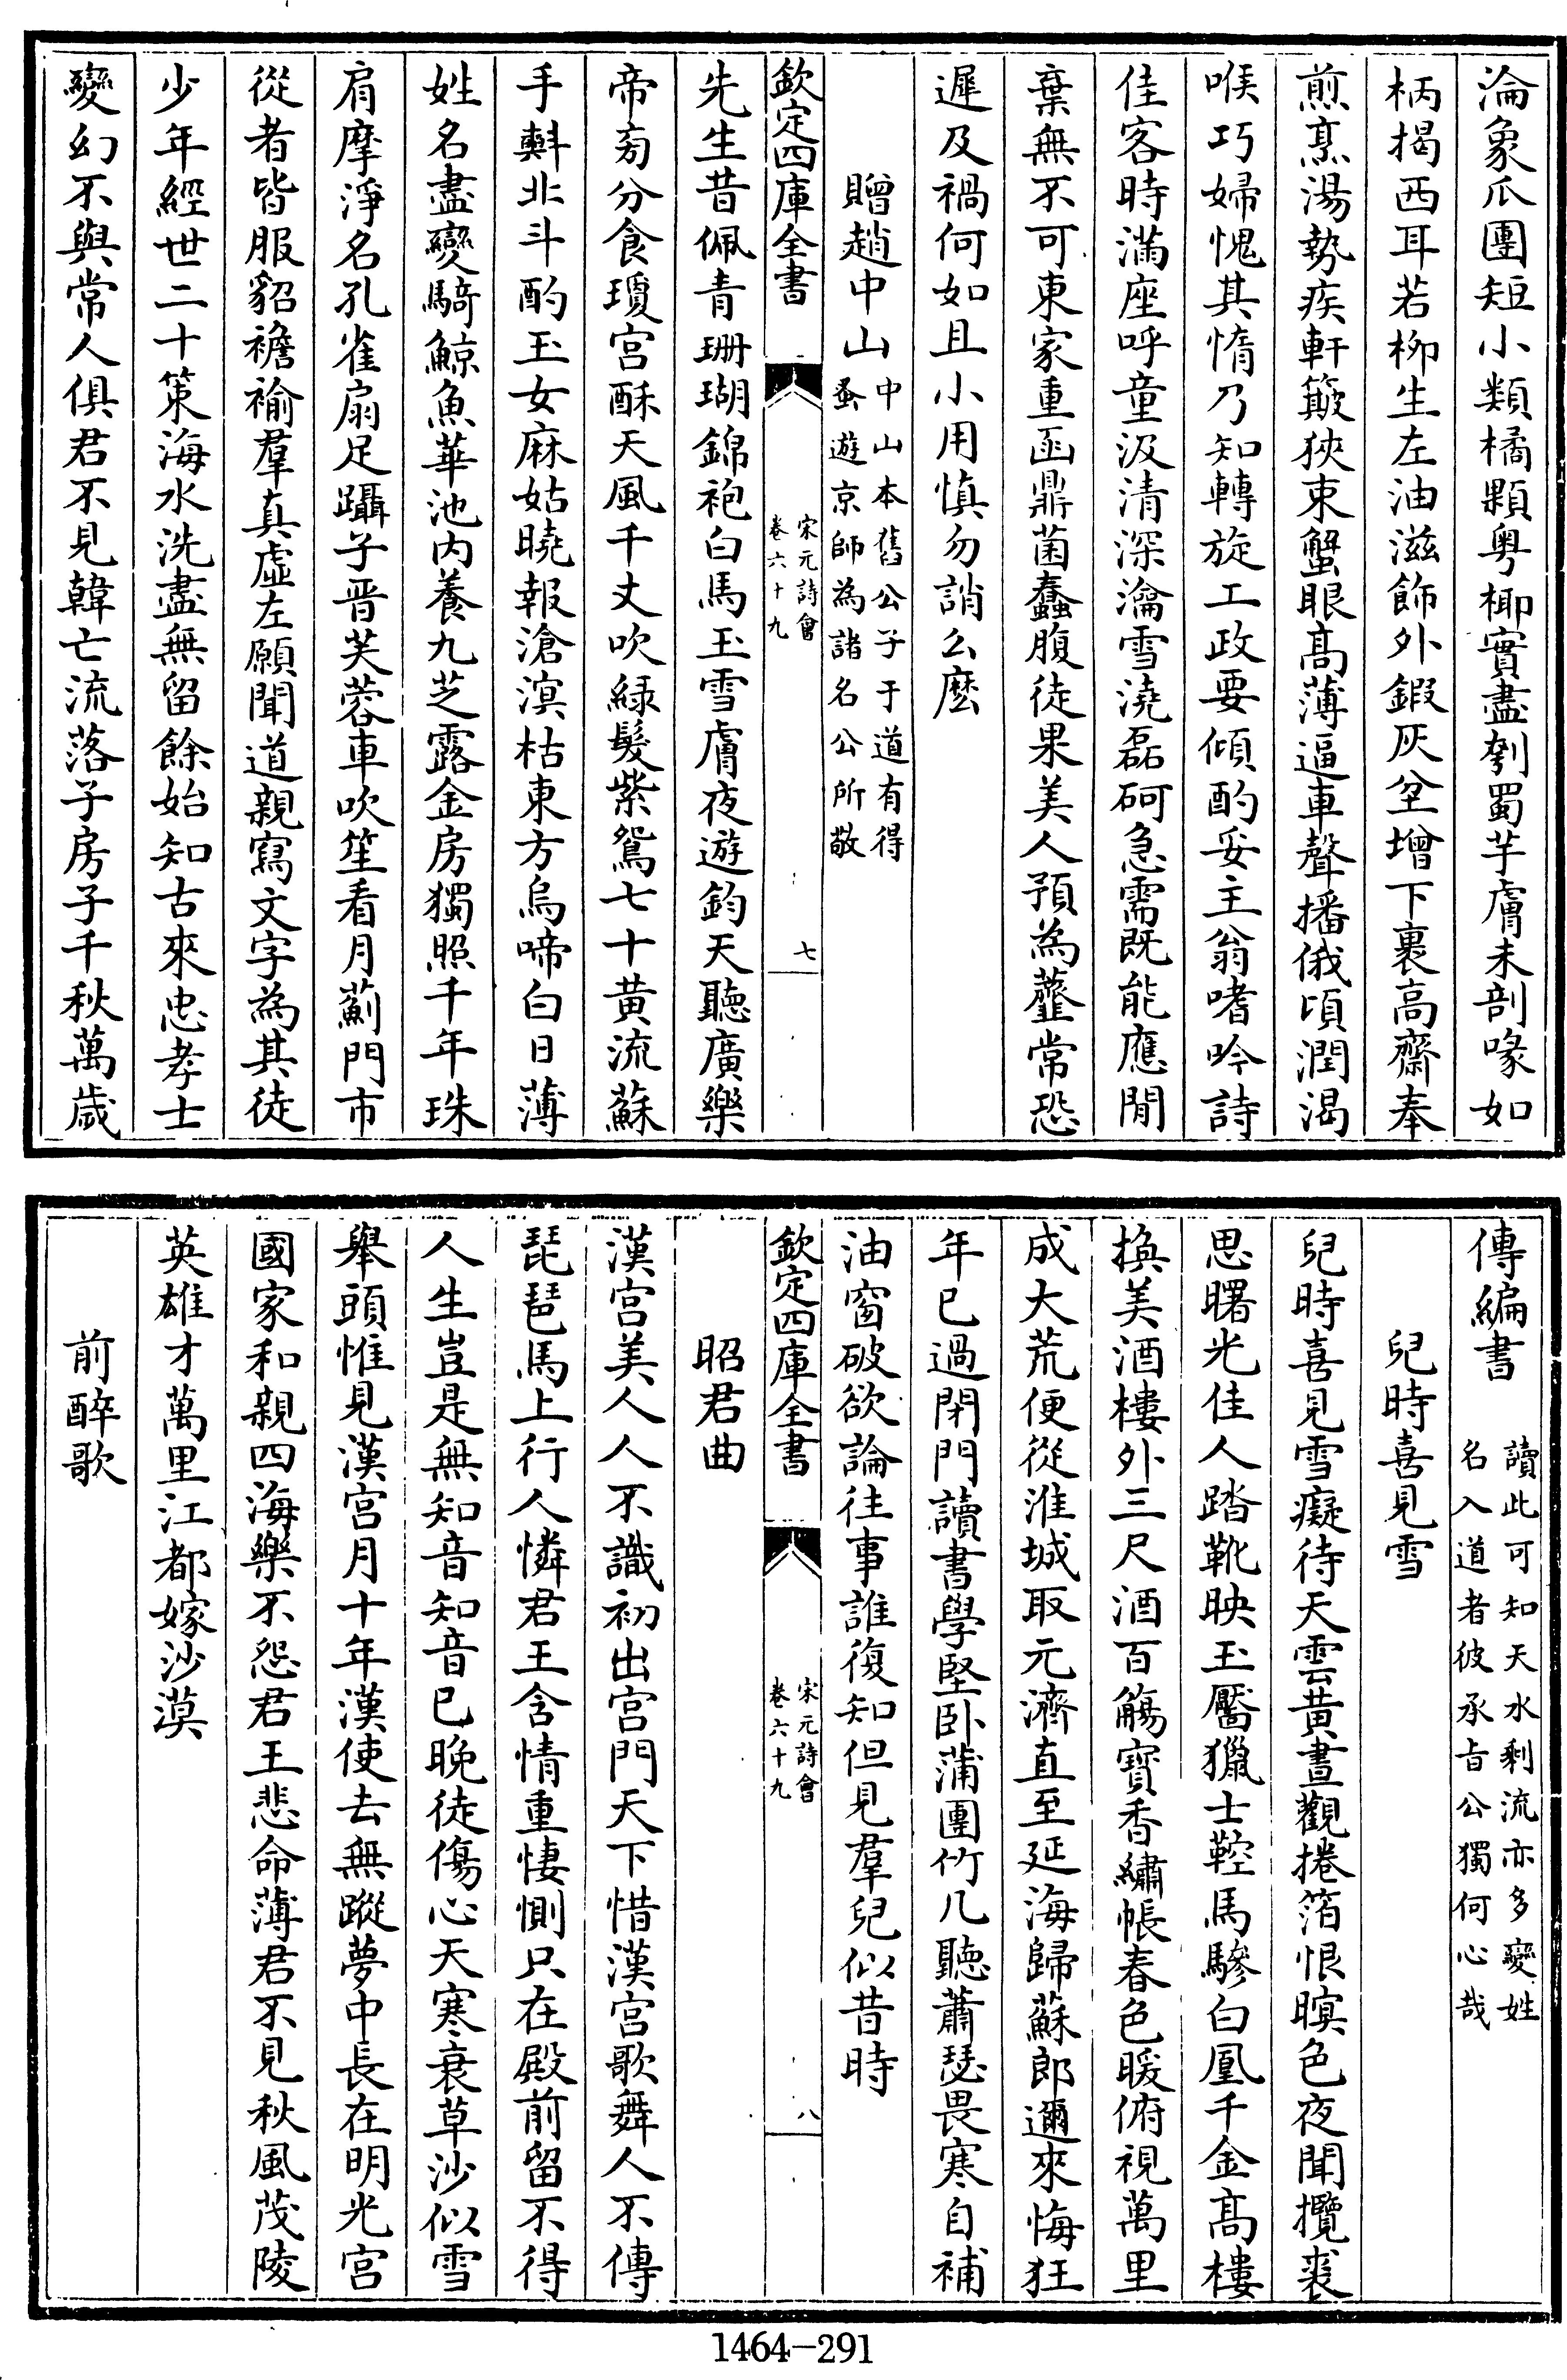 淪象爪團短小類橘顆粵柳實盡刳蜀芋膚未剖喙如
柄揭西耳若柳生左油滋飾外鍜灰坌增下裹高齋奉
煎烹湯勢疾軒簸狹束蟹眼高薄逼車聲播俄頃潤渴
喉巧婦愧其惰乃知轉旋工政要傾酌妥主翁嗜吟詩
佳客時滿座呼童汲清深瀹雪澆磊砢急需既能應閒
棄無不可東家重函鼎菌蠢腹徒果美人預為虀常恐
遲及禍何如且小用慎勿誚么麽
贈趙中山
中山本舊公子于道有得
蚤遊京師為諸名公所敬
欽定四庫全書
宋元詩會
卷六十九
七
先生昔佩青珊瑚錦袍白馬玉雪膚夜遊鈞天聽廣樂
帝旁分食瓊宮酥天風千丈吹綠髮紫鴛七十黃流蘇
手㪺北斗酌玉女麻姑曉報滄溟枯東方烏啼白日薄
姓名盡變騎鯨魚華池內養九芝露金房獨照千年珠
肩摩淨名孔雀扇足躡子晋芙蓉車吹笙看月薊門市
從者皆服貂襜褕羣真虛左願聞道親寫文字為其徒
少年經世二十策海水洗盡無留餘始知古來忠孝士
變幻不與常人俱君不見韓亡流落子房子千秋萬歲
傳編書
讀此可知天水剩流亦多變姓
名入道者彼承旨公獨何心哉
兒時喜見雪
兒時喜見雪癡待天雲黃晝觀捲箔恨暝色夜聞攬裘
思曙光佳人踏靴映玉靨獵士鞚馬驂白凰千金高樓
換美酒樓外三尺酒百觴寶香繡帳春色暖俯視萬里
成大荒便從淮城取元濟直至延海歸蘇郎邇來悔狂
年已過閉門讀書學堅卧蒲團竹几聽蕭瑟畏寒自補
油窗破欲論往事誰復知但見羣兒似昔時
欽定四庫全書
宋元詩會
卷六十九
八
昭君曲
漢宮美人人不識初出宮門天下惜漢宮歌舞人不傳
琵琶馬上行人憐君王含情重悽惻只在殿前留不得
人生豈是無知音知音已晚徒傷心天寒衰草沙似雪
舉頭惟見漢宮月十年漢使去無蹤夢中長在明光宮
國家和親四海樂不怨君王悲命薄君不見秋風茂陵
英雄才萬里江都嫁沙漠
前醉歌
1464-291